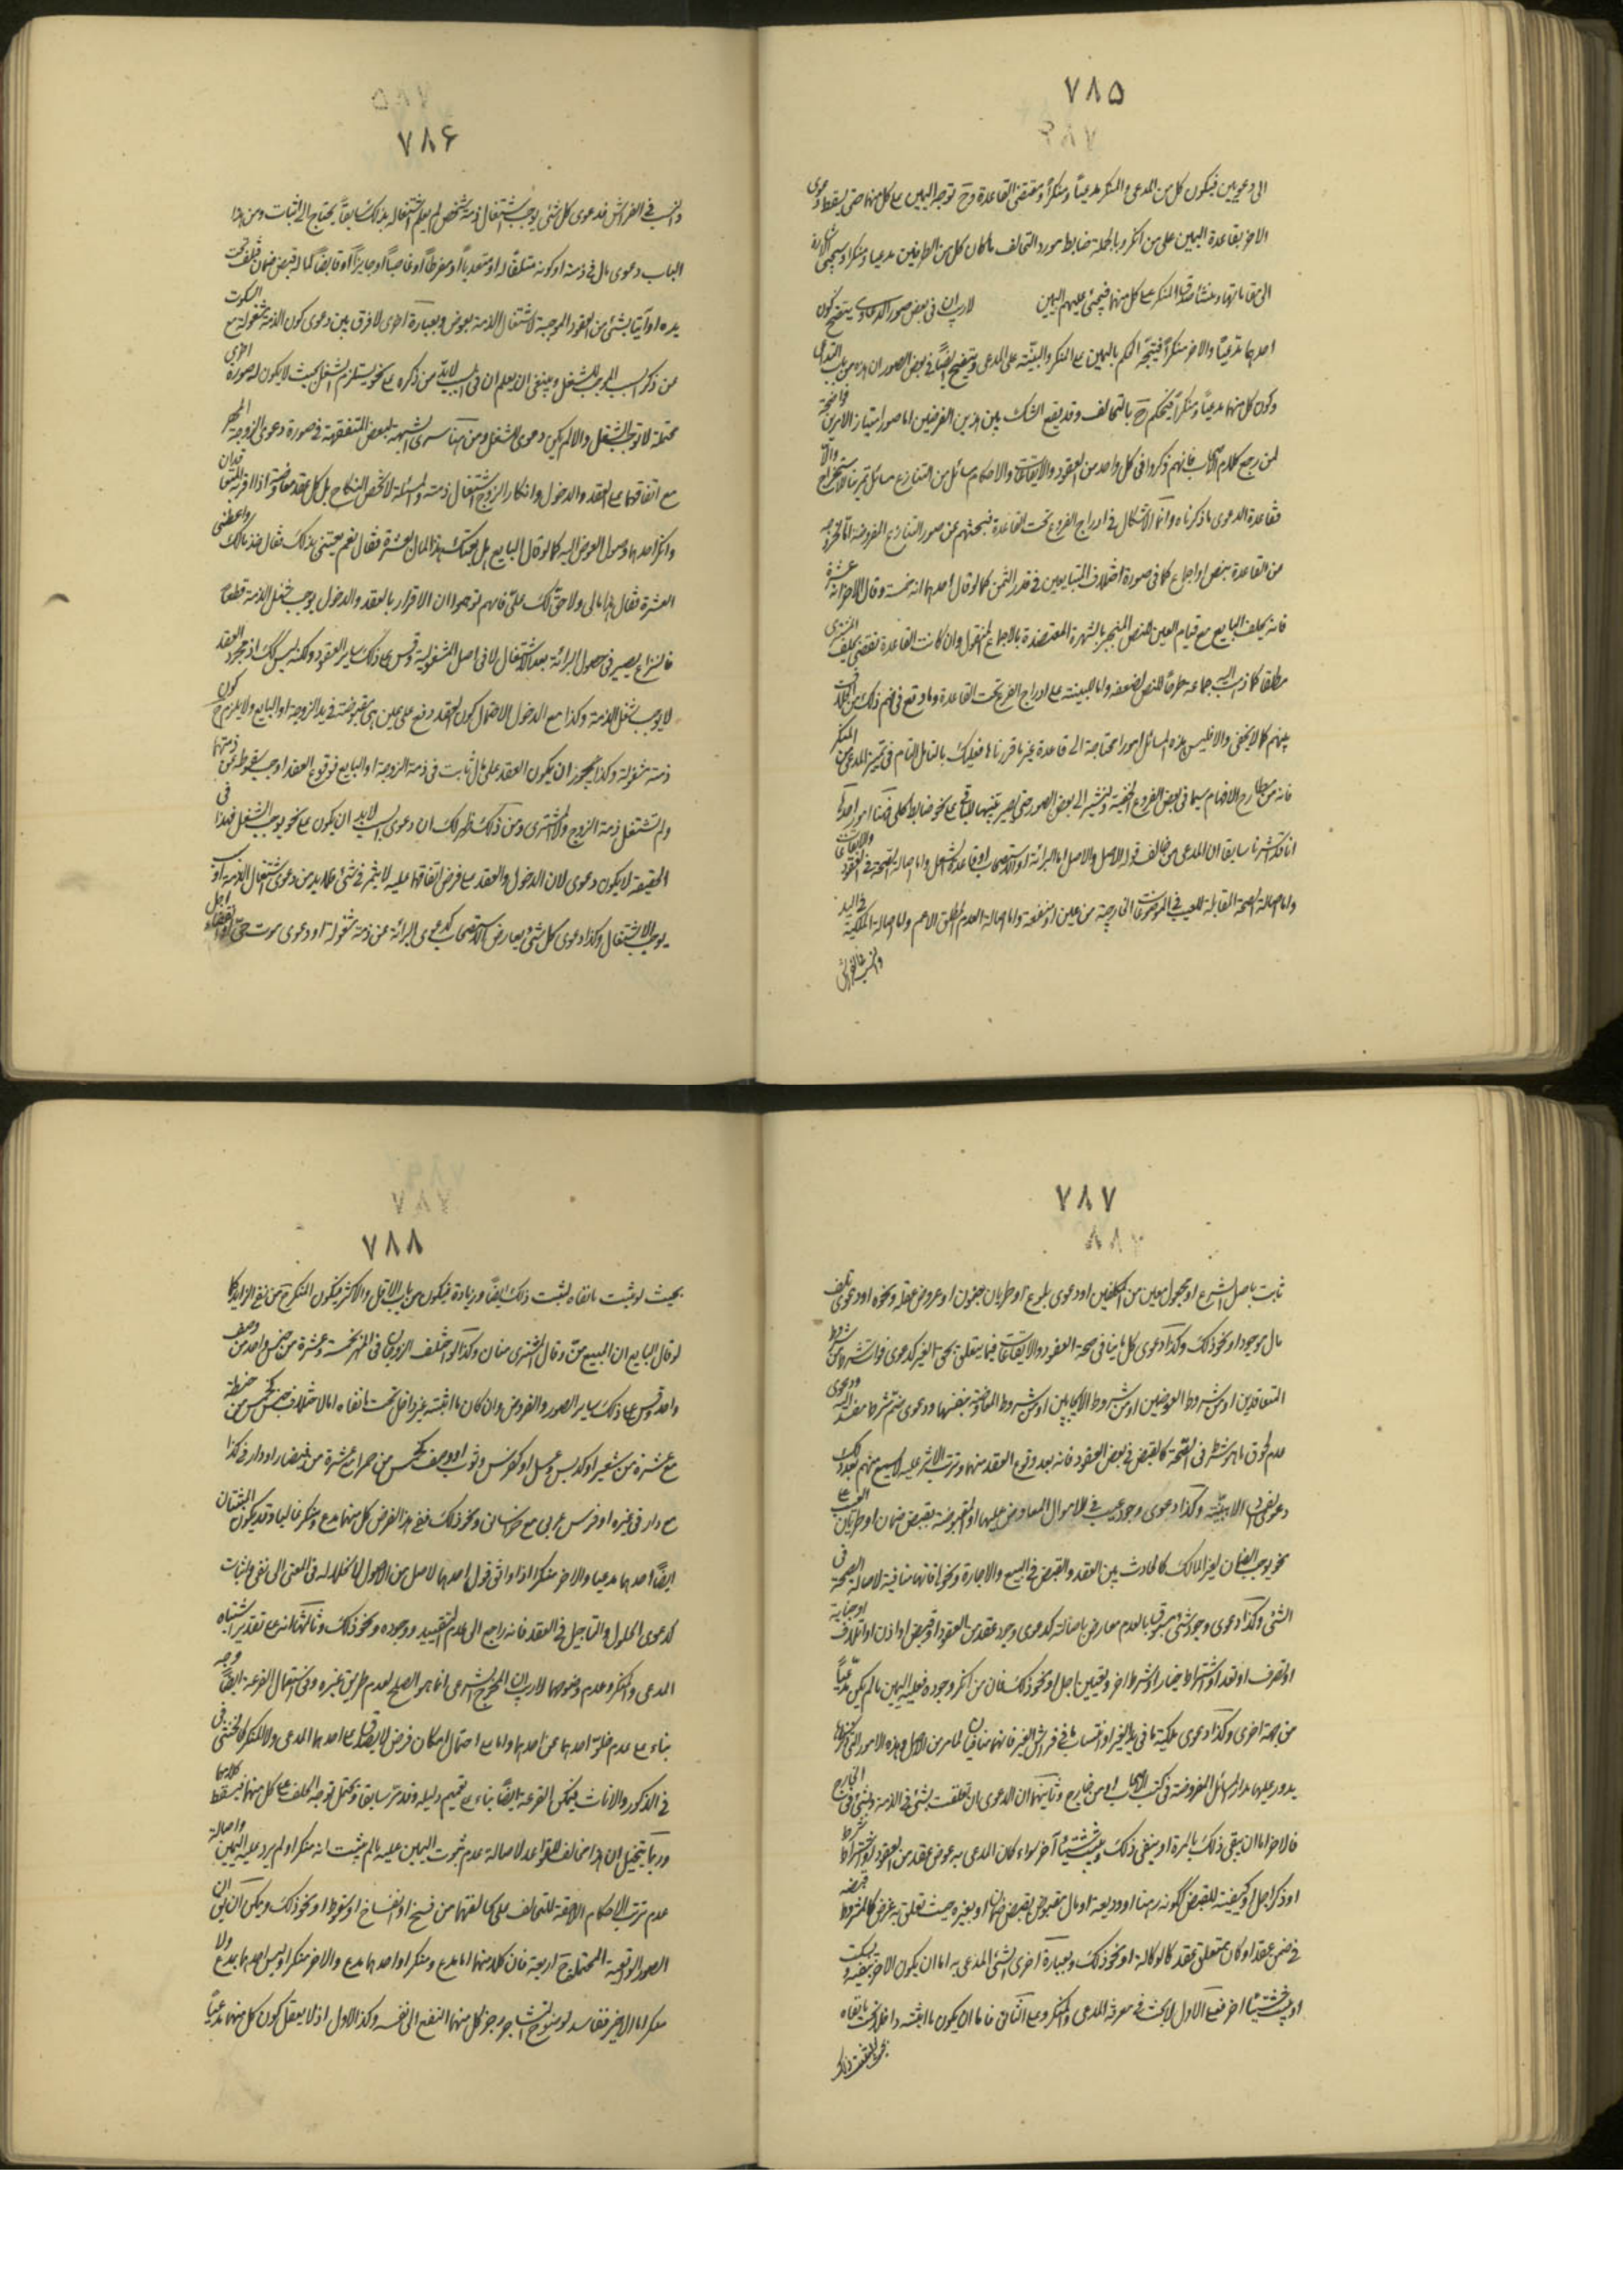 ٧٨٥
الى دعويين فيكون كل من المدعى والمنكر مدعيا ومنكرا ومقتضى القاعدة ح توجه اليمين على كل منهما حتى يسقط دعوى
الاخر بقاعدة اليمين على من انكر وبالجملة ضابط مورد التحالف ما كان كل من الطرفين مدعيا ومنكرا وسيجئ
الى مقاماتها ومنشأ صدق المنكر على كل منهما فيجئ عليهم اليمين لا ريب ان في بعض صور الدعاوى يتضح كون
احدهما مدعيا والاخر منكرا فيتجه الحكم باليمين على المنكر والبينة على المدعى ويتضح ايضا في بعض الصور ان من باب التداعى
وكون كل منهما مدعيا ومنكرا فيحكم ح بالتحالف وقد يقع الشك بين هذين الفرضين اما صور امتياز الامرين فواضحة
لمن راجع كلام الاصحاب فانهم ذكروا في كل واحد من العقود والايقاعات والاحكام مسائل من التنازع
فقاعدة الدعوى ما ذكرناه وانما الاشكال في ادراج الفروع تحت القاعدة فبحثهم عن صور التنازع المفروضة اما لخروجه
من القاعدة بنص او اجماع كما في صورة اختلاف المتبايعين في قدر الثمن كما لو قال احدهما انه خمسة وقال الاخر انه عشرة
فانه يحلف البايع مع قيام العين للنص المنجبر بالشهرة المعتضدة بالاجماع المنقول وان كانت القاعدة تقتضى تحليف المشترى
مطلقا كما ذهب اليه جماعة طرحا للنص لضعفه واما للبينة على ادراج الفرع تحت القاعدة وما وقع في ضمن ذلك من
بينهم كما لا يخفى والا فليس هذه المسائل امورا محتاجة الى قاعدة غير ما قررناها فعليك بالتأمل التام في تميز المدعى من المنكر
فانه من مطارح الافهام سيما في بعض الفروع الخفية ولنشير الى بعض الصور حتى يصير تنبيها للباقى على نحو ضابط كلى فهنا امور احدها
انا قد اشرنا سابقا ان المدعى من خالف قوله الاصل والاصل اما البرائة او الاستصحاب او قاعدة الشغل واما اصالة الصحة في العقود والايقاعات
واما اصالة الصحة المقابلة للعيب في الموضوعات الخارجية من عين او منفعة واما اصالة العدم المطلق الاعم واما اصالة الملكية في اليد
والنسب في الفراش
٧٨٦
والنسب في الفراش فدعوى كل شئ يوجب اشتغال ذمة شخص لم يعلم اشتغاله بذلك سابقا يحتاج الى اثبات ومن هذا
الباب دعوى مال في ذمته او كونه متلفا له او متعديا او مفرطا او غاصبا او جايزا او قابضا لماله قبض ضمان فتلف تحت
يده او آتيا بشئ من العقود الموجبة لاشتغال الذمة بعوض وبعبارة اخرى لا فرق بين دعوى كون الذمة مشغولة مع السكوت
عن ذكر السبب الموجب للشغل وينبغى ان يعلم ان في السبب لا بد من ذكره على نحو يستلزم الشغل بحيث لا يكون له صورة اخرى
محتملة لا توجب الشغل والا لم يكن دعوى للشغل ومن هنا سرى الشبهة لبعض المتفقهة في صورة دعوى الزوجة المهر
مع اتفاقهما على العقد والدخول وانكار الزوج اشتغال ذمته والمسئلة لا تختص النكاح بل كل عقد معاوضة اذا اقر به المتعاقدان
وانكر احدهما وصول العوض اليه كما لو قال البايع هل بعتك هذا المال بعشرة فقال نعم بعتنى بذلك فقال خذ مالك واعطنى
العشرة فقال هذا مالى ولا حق لك على فانهم توهموا ان الاقرار بالعقد والدخول يوجب شغل الذمة قطعا
فالنزاع يصير في حصول البرائة بعد الاشتغال لا في اصل المشغولية وقس على ذلك ساير العقود ولكنه ليس كذلك اذ مجرد العقد
لا يوجب شغل الذمة وكذا مع الدخول لاحتمال كون العقد وقع على عين هى مقبوضة في يد الزوجة او البايع ولا يلزم ح كون
ذمته مشغولة وكذا يجوز ان يكون العقد على مال ثابت في ذمة الزوجة او البايع فوقوع العقد اوجب سقوطه عن ذمتهما
ولم تشتغل ذمة الزوج والمشترى ومن ذلك ظهر لك ان دعوى السبب لا بد ان يكون على نحو يوجب الشغل فهذا في
الحقيقة لا يكون دعوى لان الدخول والعقد مع فرض اتفاقهما عليه لا يثمر في شئ فلا بد من دعوى اشتغال الذمة او سبب
يوجب الاشتغال وكذا دعوى كل شئ يعارض الاستصحاب كدعوى البرائة عن ذمة مشغولة او دعوى موت حى او انقضاء اجل
٧٨٧
ثابت باصل الشرع او مجهول معين من المكلفين او دعوى بلوغ او طريان جنون او عروض عقل ونحوه او دعوى تلف
مال موجود او نحو ذلك وكذا دعوى كل ما ينافى صحة العقود والايقاعات فيما يتعلق بحق الغير كدعوى فوات شرط من شروط
المتعاقدين او من شروط العوضين او من شروط الايجابين او من شروط المعاوضة بنفسها ودعوى ضم شرط مفسد اليه ودعوى
عدم لحوق ما هو شرط في الصحة كالقبض في بعض العقود فانه بعد وقوع العقد منهما وترتب الاثر عليه لا يسمع منهم بعد ذلك
دعوى الا ببينة وكذا دعوى وجود عيب في الاموال المعاوض عليها او المقبوضة بقبض ضمان او طريان العيب على
نحو يوجب الضمان لغير المالك كالحادث بين العقد والقبض في البيع والاجارة ونحو ذلك فانها منافية لاصالة الصحة في
الشئ وكذا دعوى وجود شئ مسبوق بالعدم معارض باصالته كدعوى وجود عقد من العقود او قبض او اذن او اتلاف او جناية
او تصرف او نقد او اشتراط خيار او شرط اخر وتعيين اجل او نحو ذلك فان من انكر وجوده فعليه اليمين ما لم يكن مدعيا
من جهة اخرى وكذا دعوى ملكية ما في يد الغير او انتساب ما في فراش الغير فانهما منافيان لما مر من الاصل وهذه الامور التى ذكرناها
يدور عليها مدار المسائل المفروضة في كتب الاصحاب او من خارج وثانيهما ان الدعوى ان تعلقت بشئ في الذمة او بشئ في الخارج
فالاخر اما ان ينفى ذلك بالمرة او ينفى ذلك ويثبت شيئا آخر سواء كان المدعى به عوض عقد من العقود او اشتراط شرط
او ذكر اجل او كيفية للقبض ككونه رهنا او وديعة او مال مقبوض بقبض ضمان او بغيره حيث تعلق به غرض كالمشروط قبضه
في ضمن عقد او كان متعلق عقد كالوكالة او نحو ذلك وبعبارة اخرى الشئ المدعى به اما ان يكون الاخر ينفيه ويسكت
او يثبت شيئا اخر فعلى الاول لا بحث في معرفة المدعى والمنكر وعلى الثانى فاما ان يكون ما اثبته داخلا تحت ما نفاه
٧٨٨
بحيث لو ثبت ما نفاه لثبت ذلك ايضا وزيادة فيكون من باب الاقل والاكثر فيكون المنكر ح من نفى الزايد كما
لو قال البايع ان المبيع منّ وقال المشترى منان وكذا لو اختلف الزوجان في المهر بخمسة وعشرة من جنس واحد من وصف
واحد وقس على ذلك ساير الصور والفروض وان كان ما اثبته غير داخل تحت ما نفاه اما لاختلاف جنس كخمس من حنطة
مع عشرة من شعير او كدبس وعسل او كفرس وثوب او وصف كخمس من حمراء مع عشرة من بيضاء او دار في كذا
مع دار في غيره او فرس عربى مع خراسانى ونحو ذلك ففى هذا الفرض كل منهما مدع ومنكر غالبا وقد يكون المثبتان
ايضا احدهما مدعيا والاخر منكرا اذا وافق قول احدهما لاصل من الاصول لانحلاله في المعنى الى نفى واثبات
كدعوى الحلول والتاجيل في العقد فانه راجع الى عدم التقييد ووجوده ونحو ذلك وثالثها انه على تقدير اشتباه
المدعى والمنكر وعدم وضوحهما لا ريب ان المخرج الشرعى انما هو الصلح لعدم طريق غيره وفى استعمال القرعة ايضا وجه
بناء على عدم خلو احدهما عن احدهما واما على احتمال امكان فرض لا يصدق على احدهما المدعى ولا المنكر كالخنثى في
في الذكور والاناث فيمكن القرعة ايضا بناء على تعميم دليله وقد مر سابقا ويحتمل توجه الحلف على كل منهما فيسقط كلاهما
وربما يتخيل ان هذا مخالف للقواعد لاصالة عدم ثبوت اليمين عليه ما لم يثبت انه منكر او لم يرد عليه اليمين واصالة
عدم ترتب الاحكام اللاحقة للتحالف على تحالفهما من فسخ او انفساخ او سقوط او نحو ذلك ويمكن ان يق ان
الصور الواقعية المحتملة ح اربعة فان كلا منهما اما مدع ومنكر او احدهما مدع والاخر منكر او ليس احدهما بمدع ولا
منكر اما الاخير ففاسد لوضوح التشاجر وجر كل منهما النفع الى نفسه وكذا الاول اذ لا يعقل كون كل منهما مدعيا